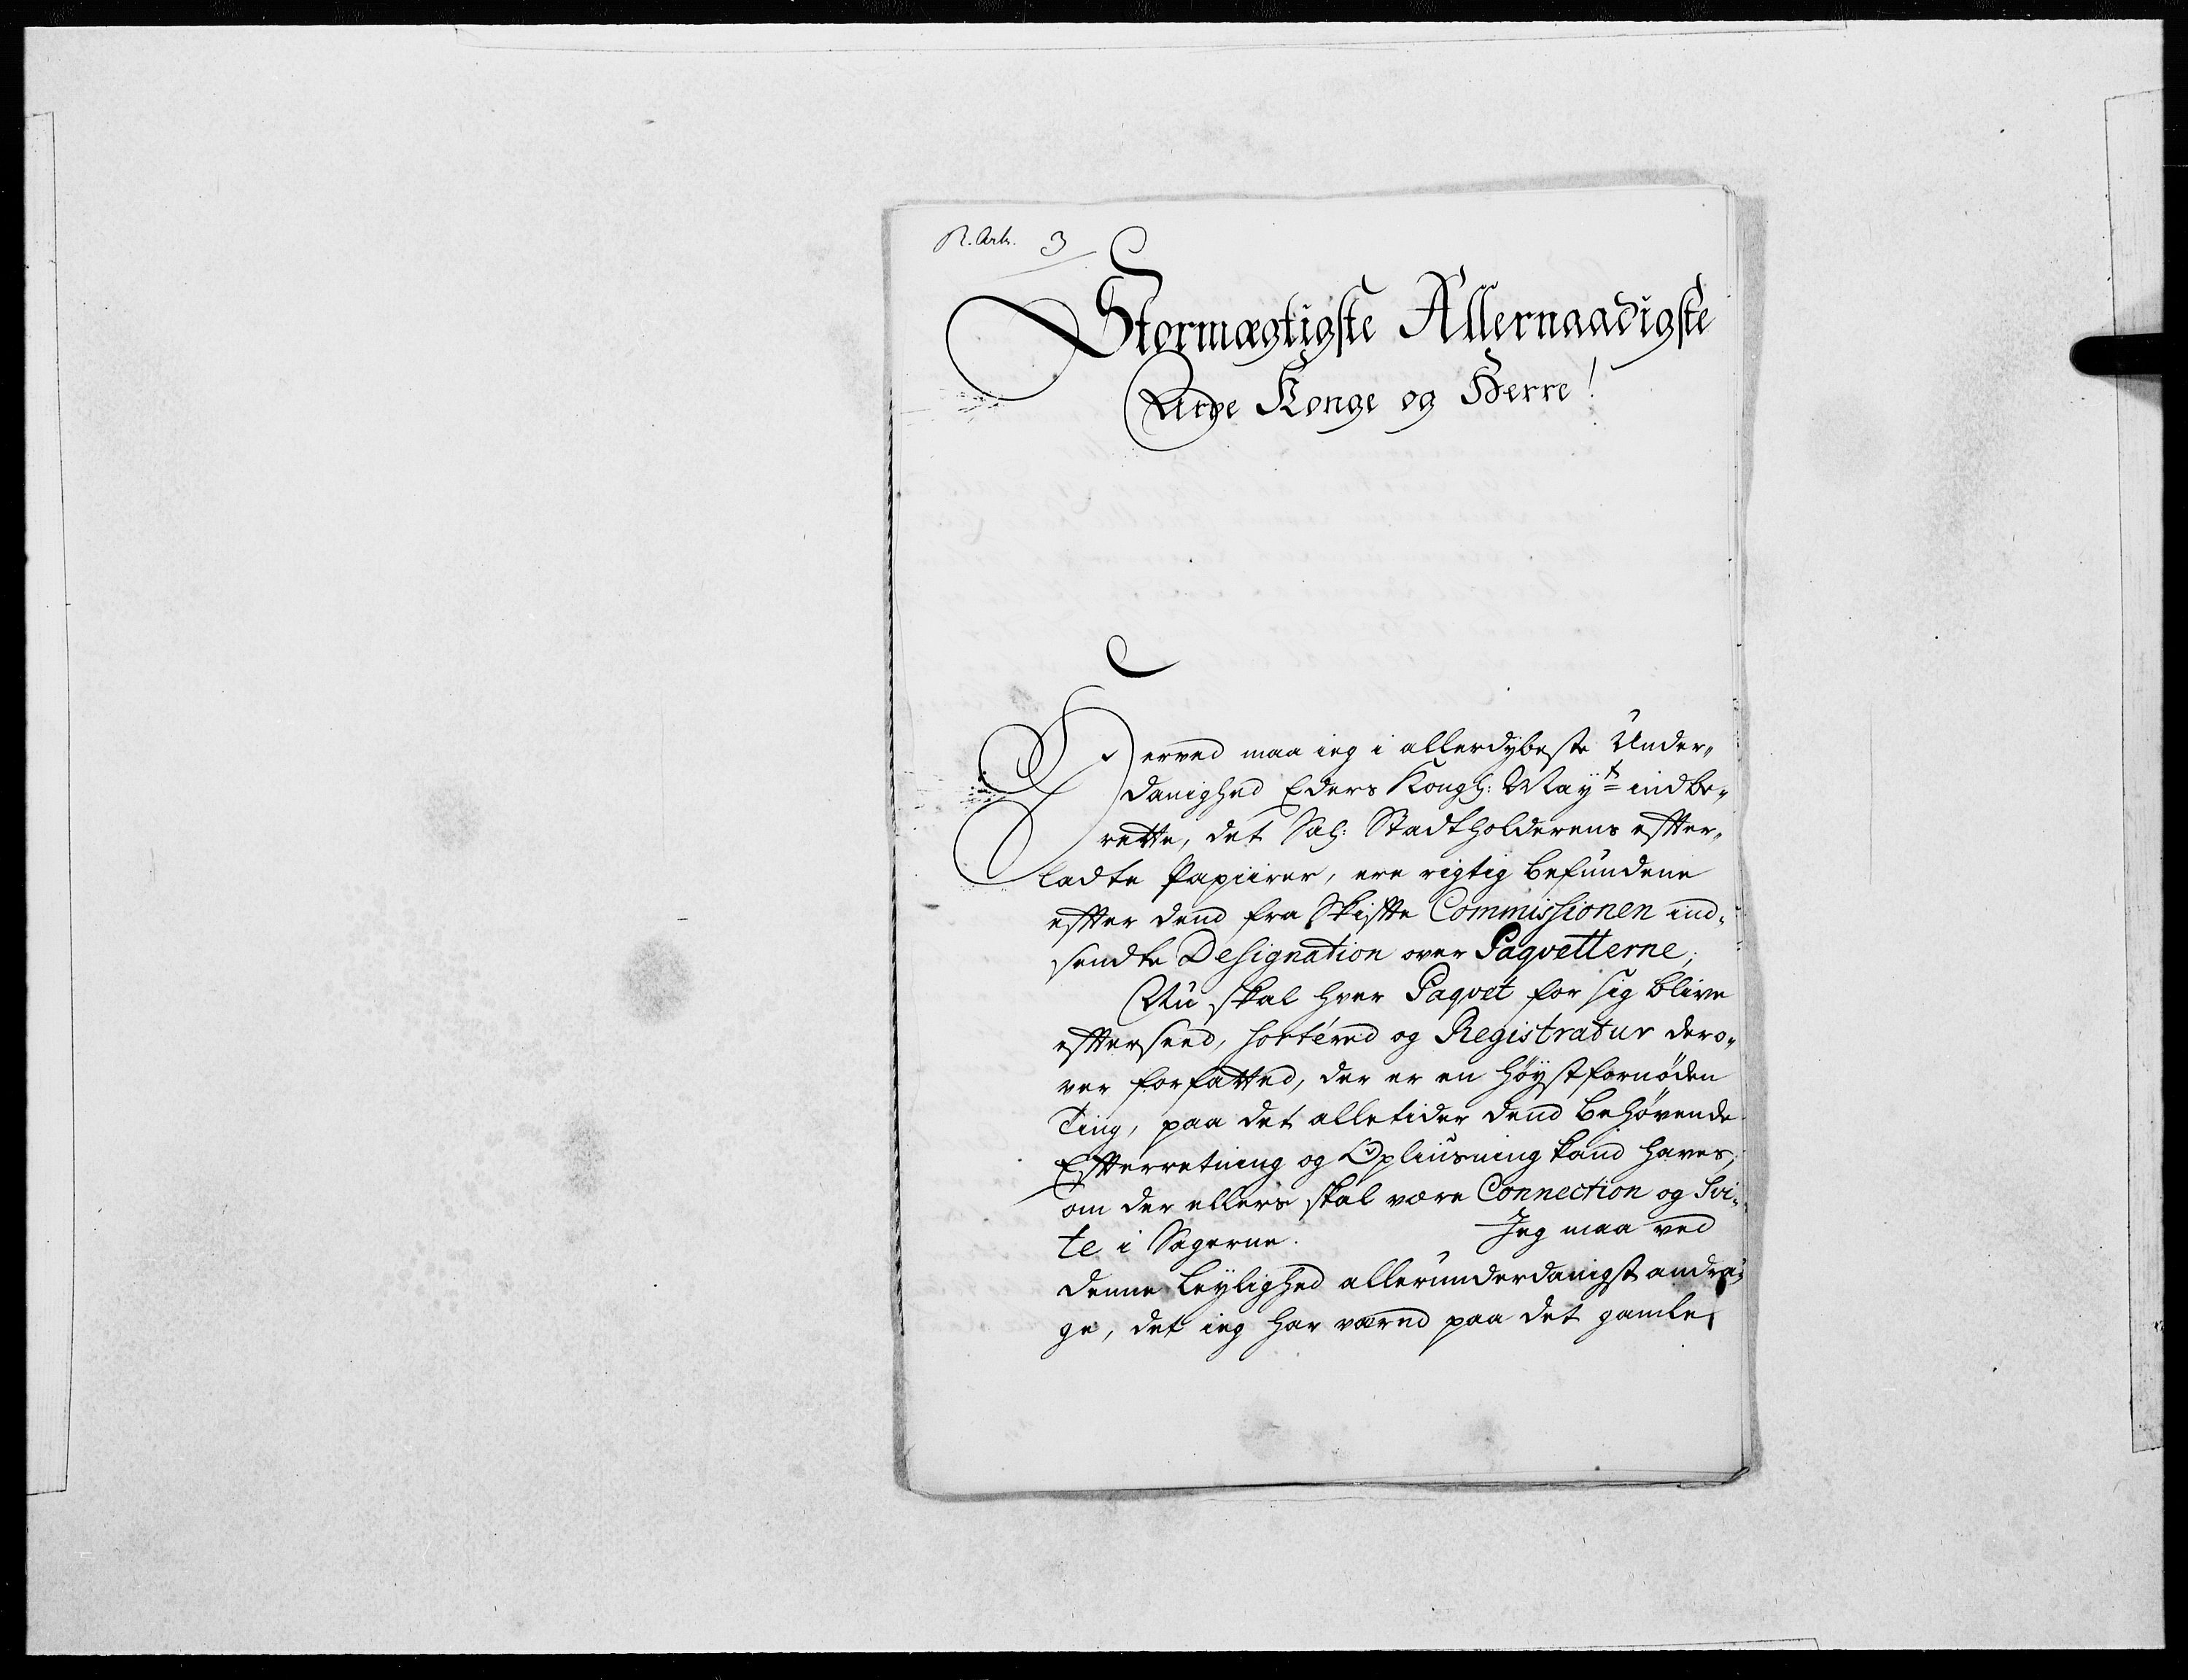 R. Ark. 3
Stormægtigste Allernaadigste
Arve Konge og Herre!
Herved maa ieg i allerdybeste Under„
danighed Eders Kongl: May:ts indbe„
rette, det Sal: Stadtholderens effter„
ladte Papiirer, ere rigtig befundene
effter dend fra Skiffte Commissionen ind„
sendte Designation over Paqvetterne;
Nu skal hver Paqvet for sig blive
effterseed, sortered og Registratur dero„
ver forfatted, der er en høystfornøden
Ting, paa det alletider dend behøvende
Effterretning og Opliusning kand haves,
om der ellers skal være Connection og Svi„
te i Sagerne. Jeg maa ved
denne Leylighed allerunderdanigst andra„
ge, det ieg harværed paa det gamle